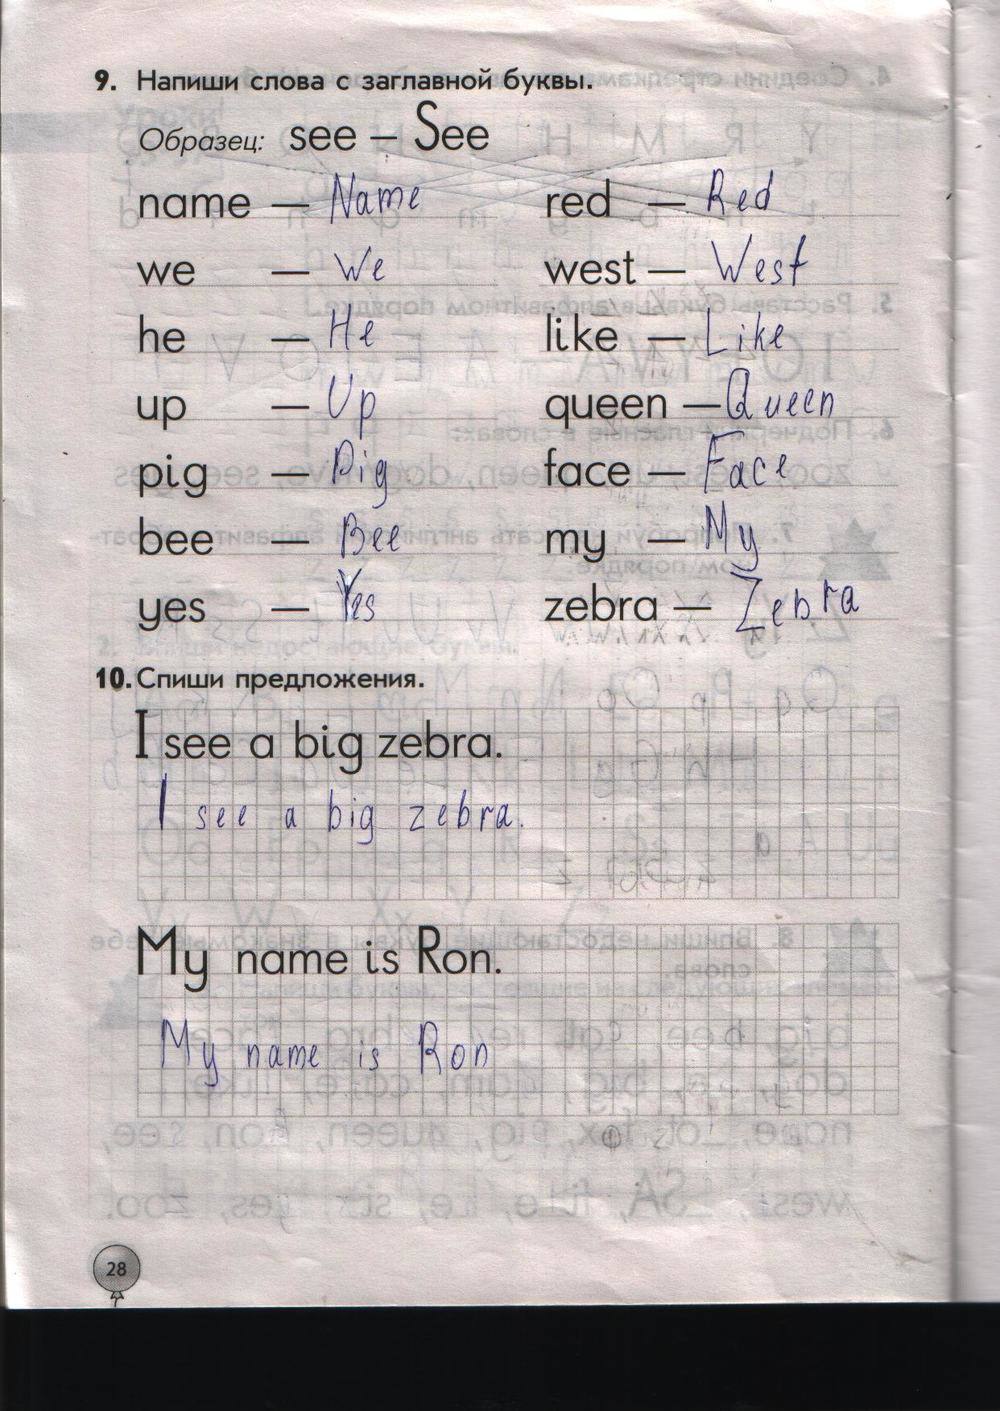 9. Напиши слова с заглавной буквы.
Образец: see – See
name – Name red – Red
we – We west – West
he – He like – Like
up – Up queen – Queen
pig – Pig face – Face
bee – Bee my – My
yes – Yes zebra – Zebra
10. Спиши предложения.
I see a big zebra.
I see a big zebra.
My name is Ron.
My name is Ron
28